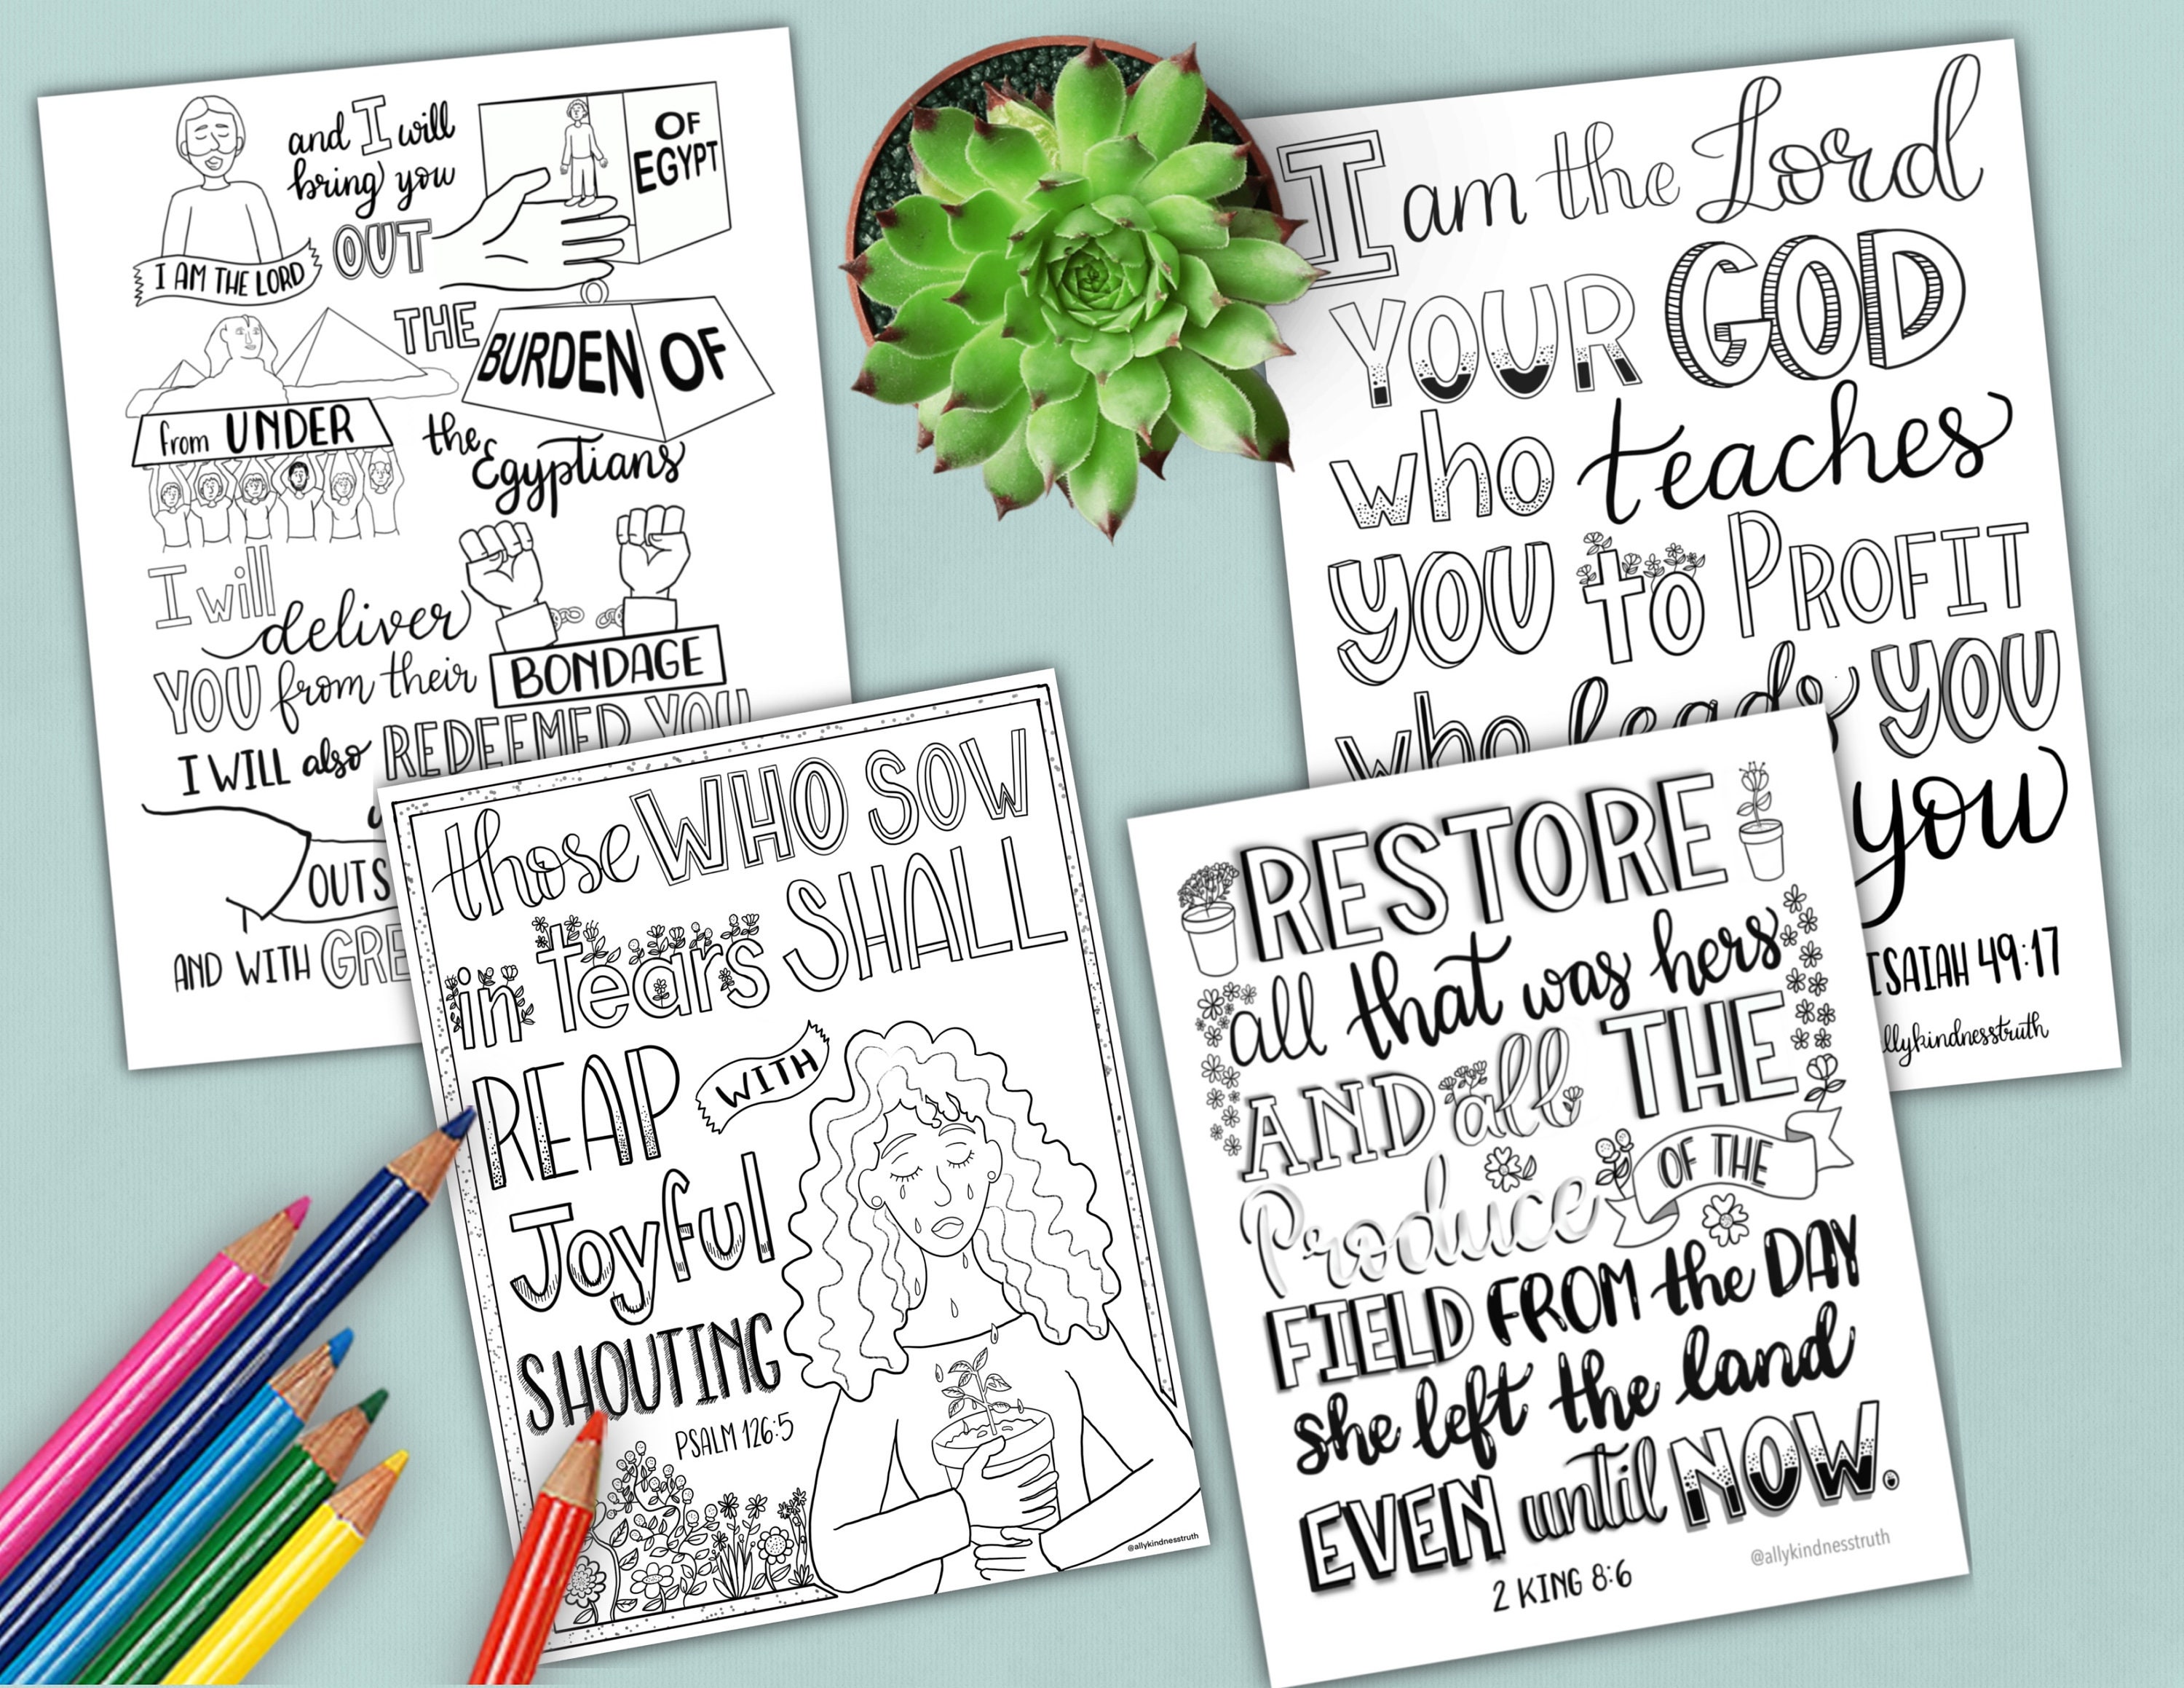 and I will
bring you
OUT
OF
EGYPT
I AM THE LORD
THE
BURDEN OF
from UNDER
the
Egyptians
I will
deliver
YOU from their BONDAGE
I WILL also REDEEMED YOU
OUTS
AND WITH GRE
I am the Lord
YOUR GOD
who teaches
YOU to PROFIT
who leads YOU
you
ISAIAH 49:17
llykindnesstruth
those WHO SOW
in tears SHALL
REAP WITH
Joyful
SHOUTING
PSALM 126:5
@allykindnesstruth
RESTORE
all that was hers
AND all THE
Produce OF THE
FIELD FROM the DAY
she left the land
EVEN until NOW.
2 KING 8:6
@allykindnesstruth